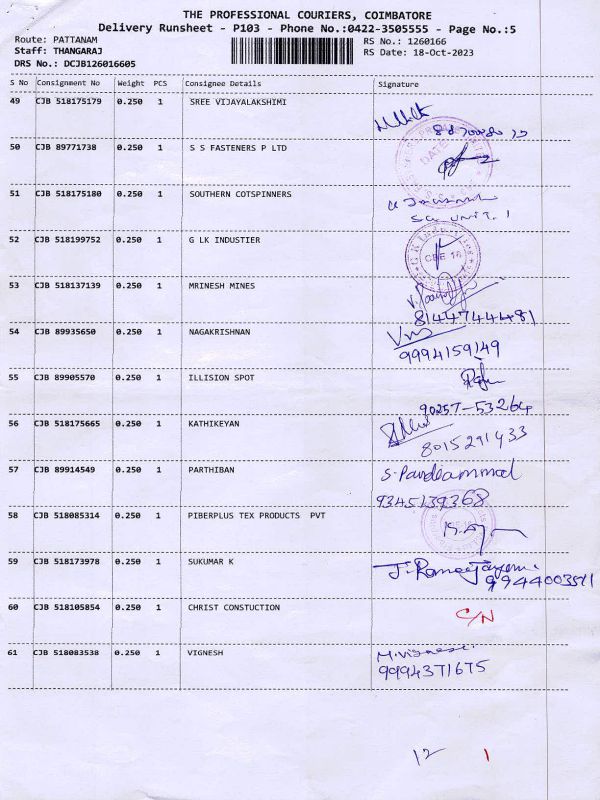 THE PROFESSIONAL COURIERS, COIMBATORE
Delivery Runsheet - P103 - Phone No.:0422-3505555 - Page No.:5
Route: PATTANAM RS No.: 1260166
Staff: THANGARAJ RS Date: 18-Oct-2023
DRS No.: DCJB126016605
S No Consignment No Weight PCS Consignee Details Signature
49 CJB 518175179 0.250 1 SREE VIJAYALAKSHIMI
50 CJB 89771738 0.250 1 S S FASTENERS P LTD
DATE
51 CJB 518175180 0.250 1 SOUTHERN COTSPINNERS
SC UNIT. 1
52 CJB 518199752 0.250 1 G LK INDUSTIER
CBE 16
53 CJB 518137139 0.250 1 MRINESH MINES
8144744481
54 CJB 89935650 0.250 1 NAGAKRISHNAN
9994159149
55 CJB 89905570 0.250 1 ILLISION SPOT
90257-53264
56 CJB 518175665 0.250 1 KATHIKEYAN
8015291433
57 CJB 89914549 0.250 1 PARTHIBAN
S. Pandiammal
9345139368
58 CJB 518085314 0.250 1 PIBERPLUS TEX PRODUCTS PVT
59 CJB 518173978 0.250 1 SUKUMAR K
9944003511
60 CJB 518105854 0.250 1 CHRIST CONSTUCTION C/N
61 CJB 518083538 0.250 1 VIGNESH M. Vignesh
9994371675
12 1